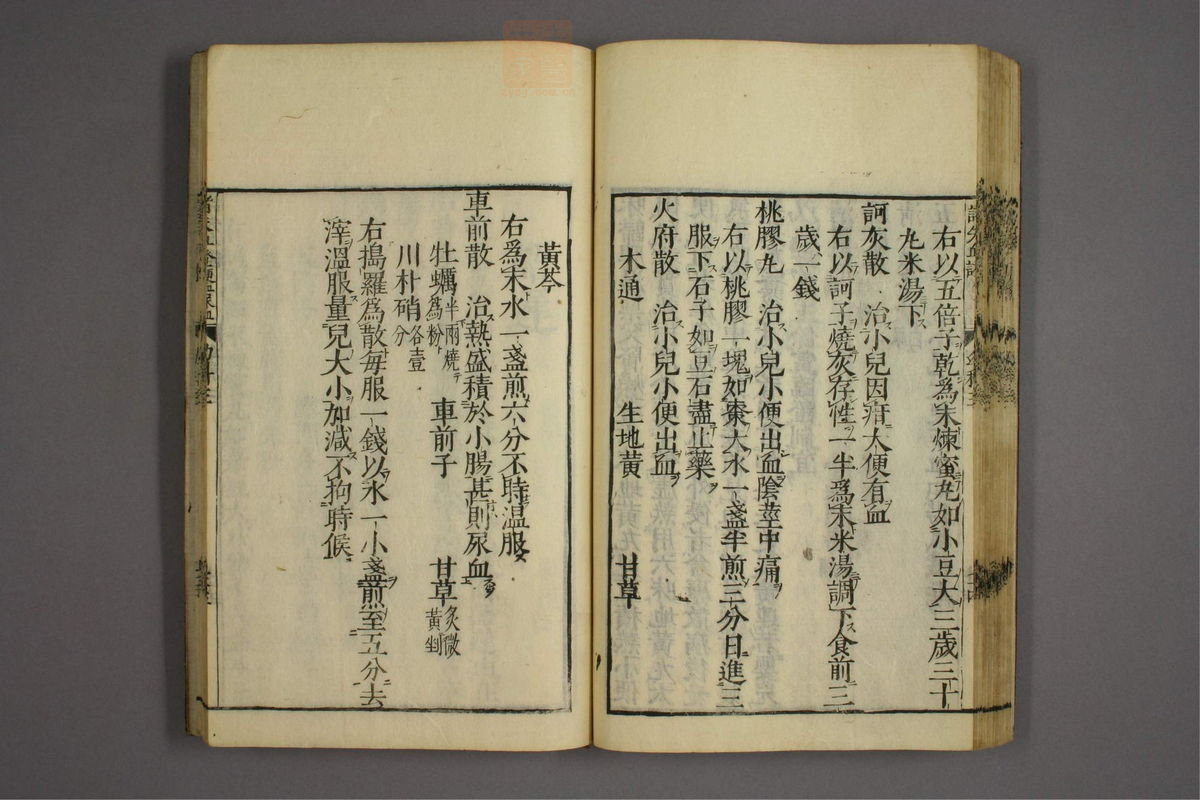 右以五倍子乾為末煉蜜丸如小豆大三歲三十
丸米湯下
訶灰散 治小兒因疳大便有血
右以訶子燒灰存性一半爲末米湯調下食前三
歲一錢
桃膠丸 治小兒小便出血陰莖中痛
右以桃膠一塊如棗大水一盞半煎三分日進三
服下石子如豆石盡止藥
火府散 治小兒小便出血
木通 生地黃 甘草
黃芩
右爲末水一盞煎六分不時溫服
車前散 治熱盛積於小腸甚則尿血
牡蠣半兩燒爲粉 車前子 甘草炙微黃剉
川朴硝各壹分
右搗羅爲散每服一錢以水一小盞煎至五分去
滓溫服量兒大小加減不拘時候